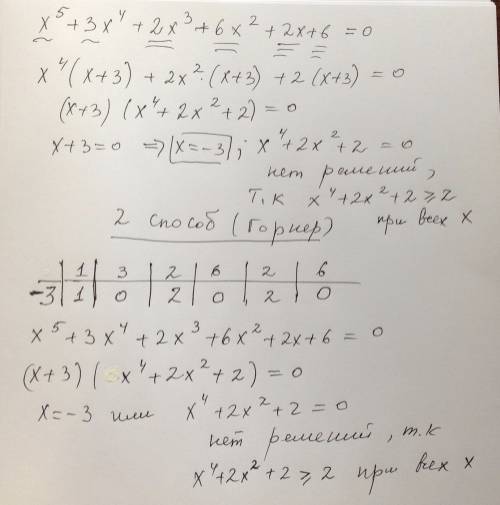 x⁵ + 3x⁴ + 2x³ + 6x² + 2x + 6 = 0
x⁴(x+3) + 2x²·(x+3) + 2(x+3) = 0
(x+3)(x⁴ + 2x² + 2) = 0
x+3=0 ⇒ x=-3; x⁴+2x²+2 = 0
нет решений,
т.к x⁴+2x²+2 ≥ 2
при всех x
2 способ (Горнер)
1 | 3 | 2 | 6 | 2 | 6
-3 | 1 | 0 | 2 | 0 | 2 | 0
x⁵ + 3x⁴ + 2x³ + 6x² + 2x + 6 = 0
(x+3)(x⁴ + 2x² + 2) = 0
x=-3 или x⁴+2x²+2=0
нет решений, т.к
x⁴+2x²+2 ≥ 2 при всех x